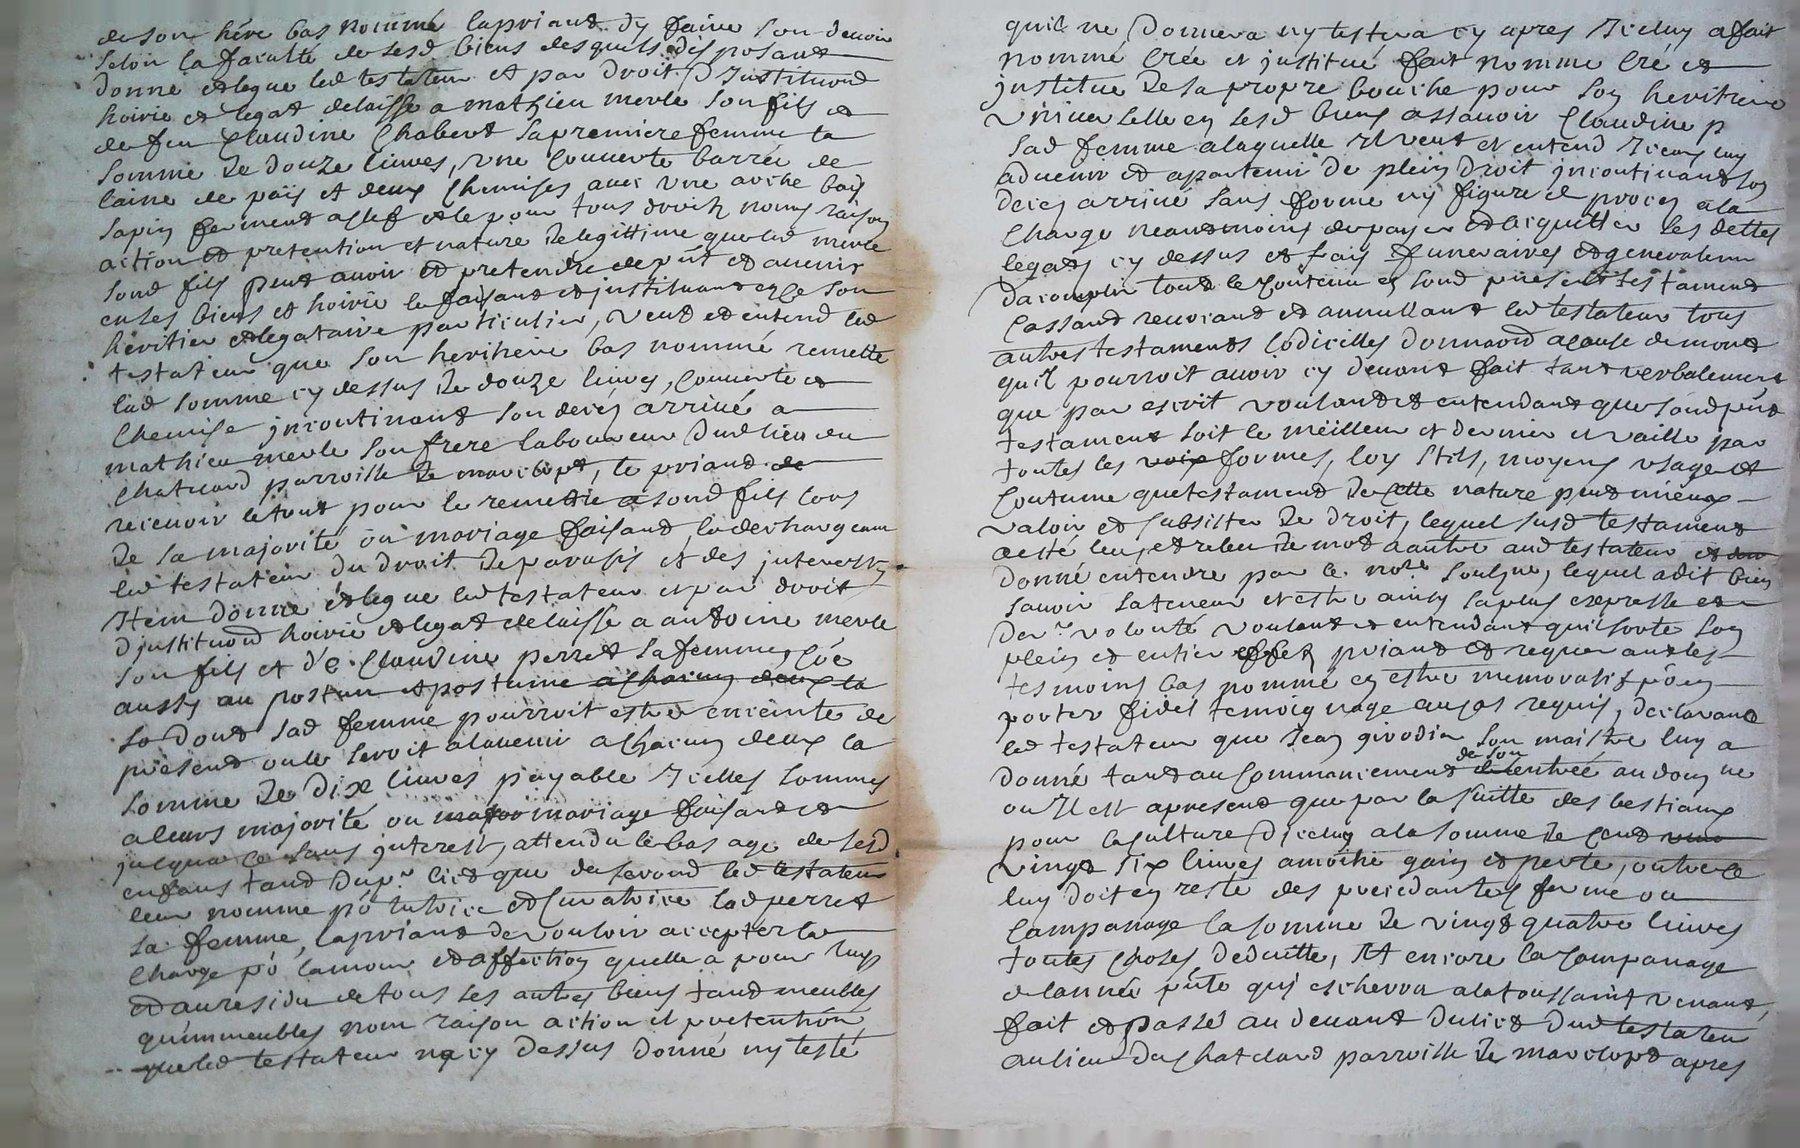 de son hére bas nommé lapriant dy faire son devoir
selon la faculté de sesd biens desquels disposant
donne et legue led testateur et par droit d'Instituond
hoirie et legat delaisse a mathieu merle son fils et
de feu Claudine Chabert sa premiere femme la
somme De douze livres, une couverte barrée de
laine de païs et deux chemises avec une arche bois
sapin ferment a clef et le pour tous droits noms raison
action et pretention et nature De legittime que led merle
sond fils peut avoir et pretendre depnt et avenir
en ses biens et hoirie le faisant et instituant en ce son
heritier et legataire particulier, veut et entend led
testateur que son heritiere bas nommé remette
lad somme cy dessus De douze livres, couverte et
chemise incontinant son decés arrivé a
mathieu merle son frere laboureur dud lieu du
Chatelard parroisse De marcilopt, le priant de
recevoir le tout pour le remettre a sond fils lors
De sa majorité ou mariage faisant, le deschargeant
led testateur du droit De parafis et des interests
Item donne et legue led testateur et par droit
d'justituond hoirie et legat delaisse a antoine merle
son fils et d'e Claudine perret sa femme, côe
aussy au postun et postume a chacun deux la
so dont sad femme pourroit estre enceinte de
present ou le seroit alavenir a chacun deux la
somme De Dix livres payable Icelles sommes
a leurs majorité ou major mariage faisant et
jusqua ce sans interest, attendu le bas age de sesd
enfans tand du pr. lict que du second led testateur
leur nomme pô tutrice et curatrice lad perret
sa femme, lapriant de vouloir accepter la
charge pô lamour et affection quelle a pour luy
et au residu de tous ses autres biens tand meubles
qu'immeubles nom raison action et pretention
que led testateur na cy dessus donné ny testé
quil ne donnera ny testera cy apres Iceluy a fait
nommé créé et justitué fait nomme cré et
justitue De sa propre bouche pour son heritiere
universelle en sesd biens assavoir Claudine p
sad femme a laquelle Il veut et entend Iceux luy
advenir et apartenir de plein droit incontinant son
decés arrivé sans forme ny figure de procés a la
charge neantmoins de payer et acquitter les dettes
legats cy dessus et frais funeraires et generalem
dacomplir tout le contenu en sond present testament
Cassand revocant et annullant led testateur tous
autres testaments codicilles donnaond a cause de mort
qu'il pourroit avoir cy devant fait tant verbalement
que par escrit voulant et entendant que sond pnt
testament soit le meilleur et dernier et vaille par
toutes les voix formes, loy stils, moyens usage et
coutume que testament De cette nature peut mieux
valoir et subsister De droit, lequel susd testament
a esté leu et releu De mot a autre aud testateur et don
donné entendre par le nore. soulsne, lequel a dit bien
savoir sa teneur et estre ainsy sa plus expresse et
Derre. volonté voulant et entendant qui sorte son
plein et entier effet priant et requerant les
tesmoins bas nommé en estre memoratifs pô en
porter fidel temoignage au cas requis, declarant
led testateur que Jean girodin son maistre luy a
donné tant au commancement de son entrée au domne
ou Il est apresent que par la suitte des bestiaux
pour la culture dicelluy a la somme De cent vint
vingt six livres a moitié gain et perte, outre ce
luy doit en reste des precedantes ferme ou
campanage la somme De vingt quatre livres
toutes choses deduitte, Et encore la campanage
de lannée pnte qui eschevra a la toussaint venant,
fait et passé au devant du lict dud testateu
au lieu du Chatelard parroisse De marcilopt apres